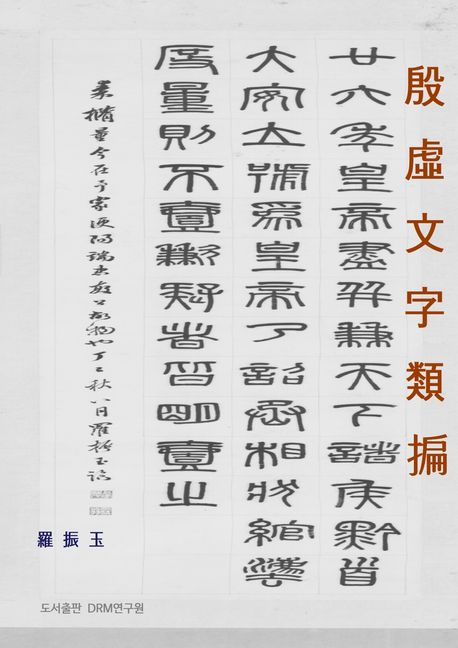 殷虛文字類揙
廿六年皇帝盡并兼天下諸矦黔首
大安立號爲皇帝乃詔丞相狀綰灋
度量則不壹歉疑者皆明壹之
秦橢量今在予家浭陽端忠敏公故物也丁巳秋八月羅振玉
羅振玉
도서출판 DRM연구원